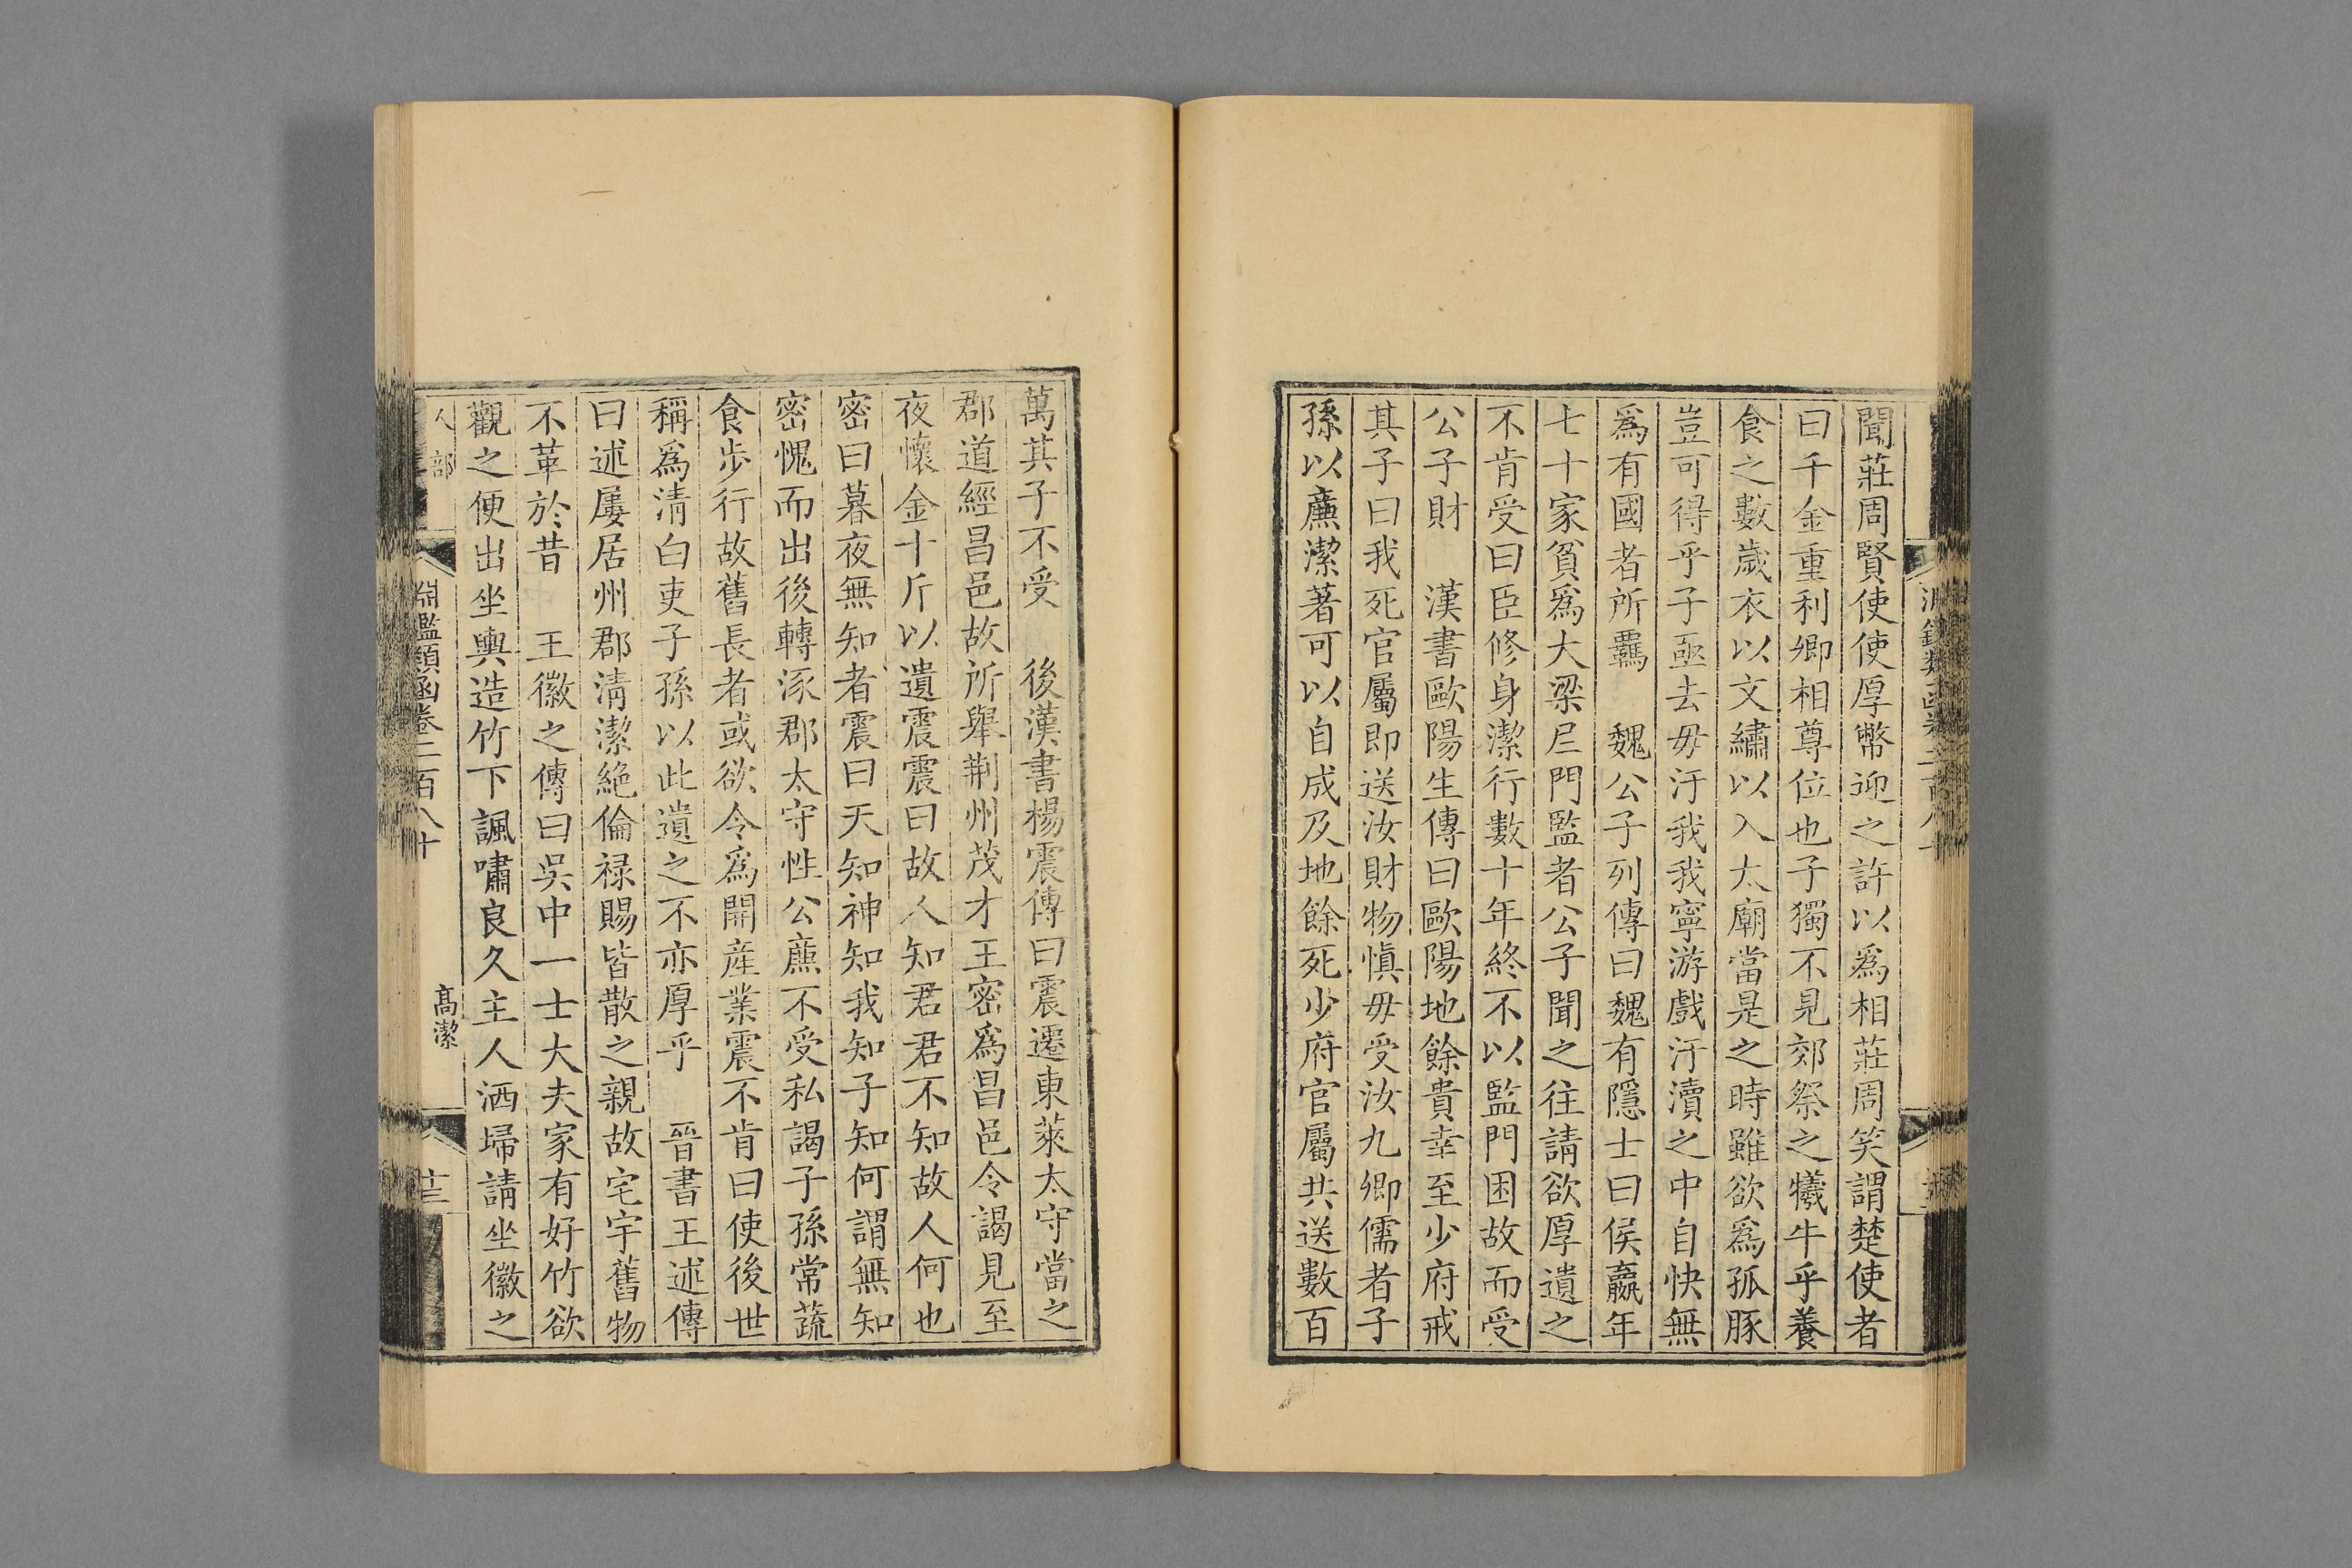 聞莊周賢使使厚幣迎之許以爲相莊周笑謂楚使者
曰千金重利卿相尊位也子獨不見郊祭之犧牛乎養
食之數歲衣以文繡以入太廟當是之時雖欲爲孤豚
豈可得乎子亟去毋汙我我寧游戲汙瀆之中自快無
爲有國者所羈　魏公子列傳曰魏有隱士曰侯嬴年
七十家貧爲大梁𡰥門監者公子聞之往請欲厚遺之
不肯受曰臣修身潔行數十年終不以監門困故而受
公子財　漢書歐陽生傳曰歐陽地餘貴幸至少府戒
其子曰我死官屬即送汝財物慎毋受汝九卿儒者子
孫以廉潔著可以自成及地餘死少府官屬共送數百
萬其子不受　後漢書楊震傳曰震遷東萊太守當之
郡道經昌邑故所舉荆州茂才王密爲昌邑令謁見至
夜懷金十斤以遺震震曰故人知君君不知故人何也
密曰暮夜無知者震曰天知神知我知子知何謂無知
密愧而出後轉涿郡太守性公廉不受私謁子孫常蔬
食步行故舊長者或欲令爲開産業震不肯曰使後世
稱爲清白吏子孫以此遺之不亦厚乎　晉書王述傳
曰述屢居州郡清潔絶倫禄賜皆散之親故宅宇舊物
不革於昔　王徽之傳曰吳中一士大夫家有好竹欲
觀之便出坐輿造竹下諷嘯良久主人洒埽請坐徽之
人部
淵鑑類函卷二百八十
高潔